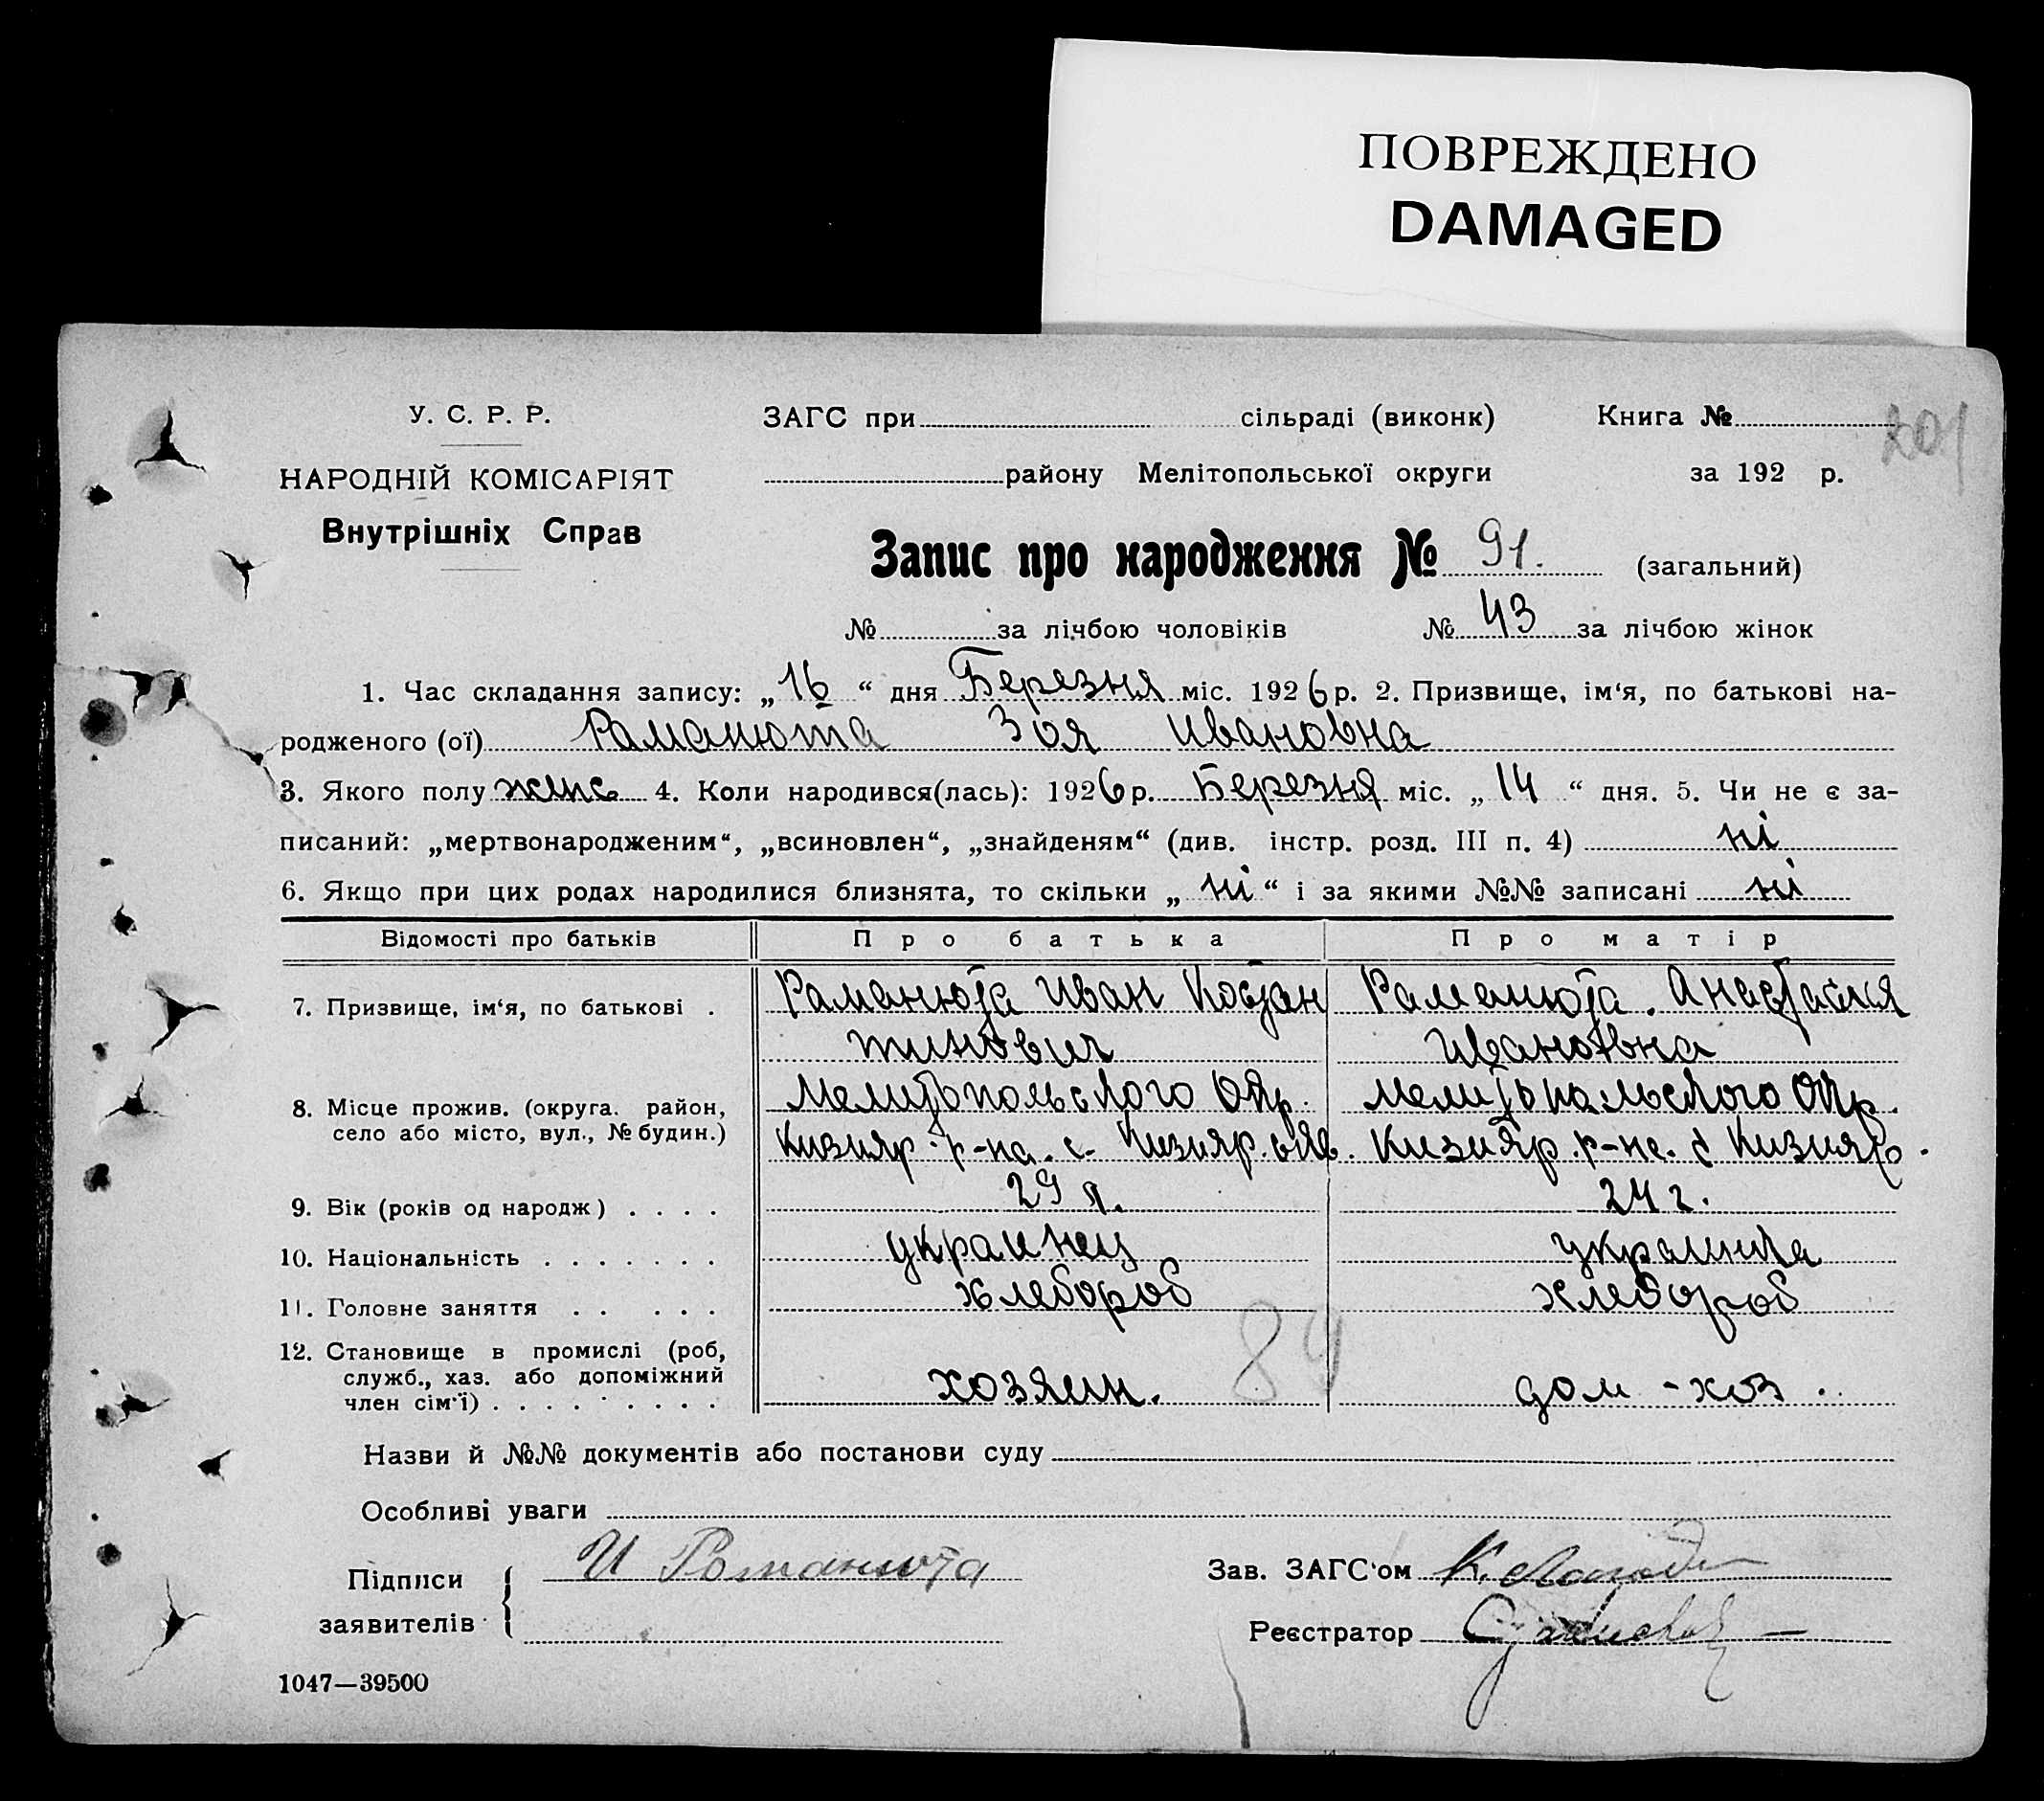 ПОВРЕЖДЕНО
DAMAGED
У. С. Р. Р.
ЗАГС при сільраді (виконк) Книга № 201
НАРОДНІЙ КОМІСАРІЯТ
району Мелітопольської округи за 192 р.
Внутрішніх Справ
Запис про народження № 91. (загальний)
№ за лічбою чоловіків № 43 за лічбою жінок
1. Час складання запису: „16“ дня Березня міс. 1926 р. 2. Призвище, ім‘я, по батькові на-
родженого (ої) Раманюта Зоя Ивановна
3. Якого полу женс 4. Коли народився(лась): 1926 р. Березня міс. „14“ дня. 5. Чи не є за-
писаний: „мертвонародженим“, „всиновлен“, „знайденям“ (див. інстр. розд. III п. 4) ні
6. Якщо при цих родах народилися близнята, то скільки „ні“ і за якими №№ записані ні
Відомості про батьків Про батька Про матір
7. Призвище, ім‘я, по батькові . Раманюта Иван Костан Раманюта. Анастасия
тинович Ивановна
8. Місце прожив. (округа. район, Мелитопольского Окр. Мелитопальского Окр.
село або місто, вул., № будин.) Кизияр. р-на. с. Кизияр. Кизияр. р-на. с Кизияр.
9. Вік (років од народж) . . . . 29 л. 24 г.
10. Національність . . . . . . . украинец украинка
11. Головне заняття . . . . . хлебороб хлебороб
12. Становище в промислі (роб,
служб., хаз. або допоміжний хозяин. дом-хоз.
член сім‘ї) . . . . . . . . . 84
Назви й №№ документів або постанови суду
Особливі уваги
Підписи И Романюта Зав. ЗАГС‘ом К.
заявителів Реєстратор
1047—39500